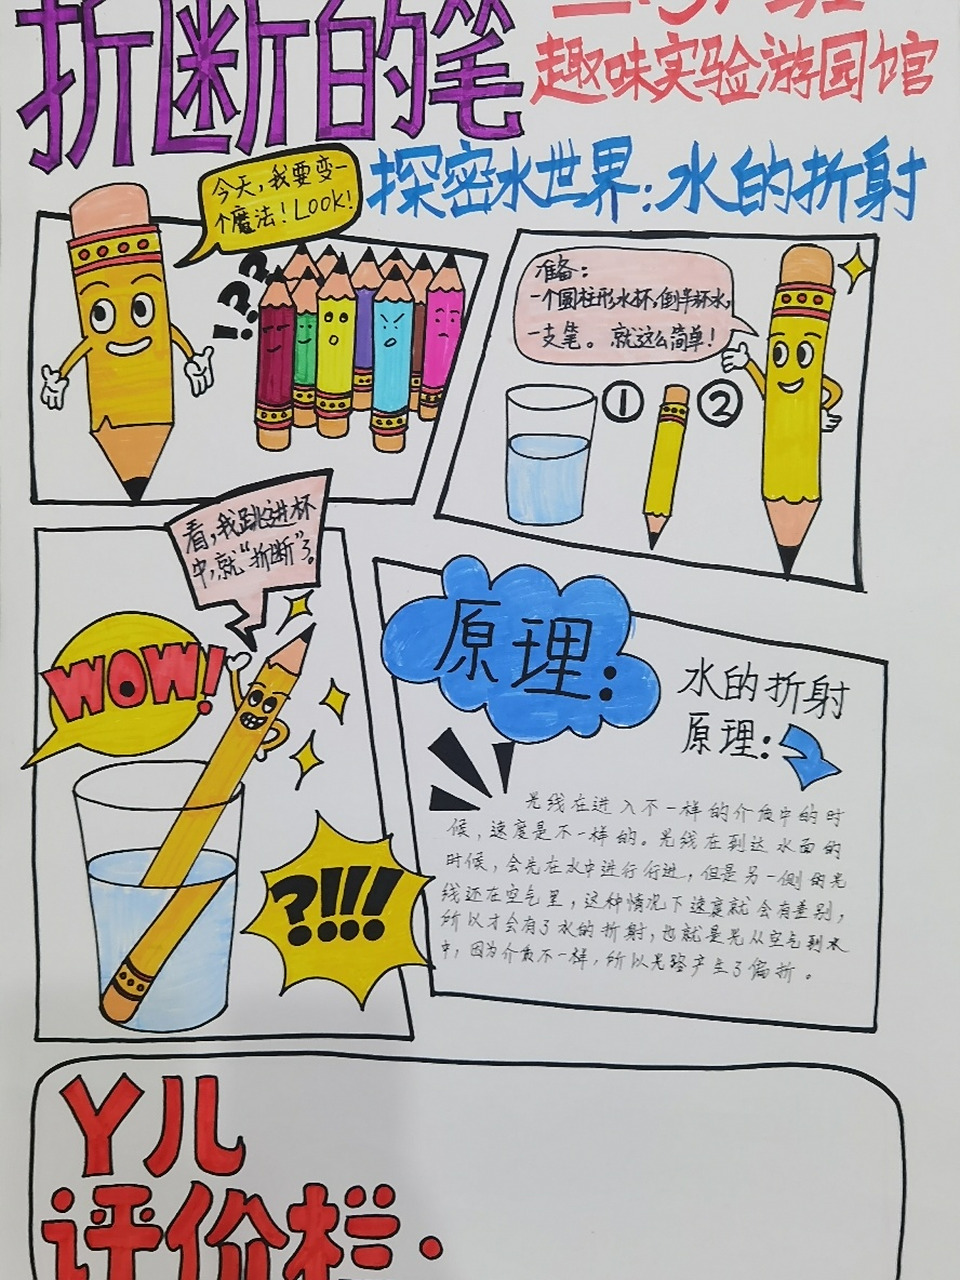 折断的笔
趣味实验游园馆
探密水世界：水的折射
今天，我要变一
个魔法！LOOK！
!???
准备：
一个圆柱形水杯，倒半杯水，
一支笔。就这么简单！
① ②
看，我跳进杯
中，就“折断”了。
WOW!
?!!!
原理：
水的折射
原理：
光线在进入不一样的介质中的时
候，速度是不一样的。光线在到达水面的
时候，会先在水中进行行进，但是另一侧的光
线还在空气里，这种情况下速度就会有差别，
所以才会有了水的折射，也就是光从空气到水
中，因为介质不一样，所以光路产生了偏折。
丫儿
评价栏：